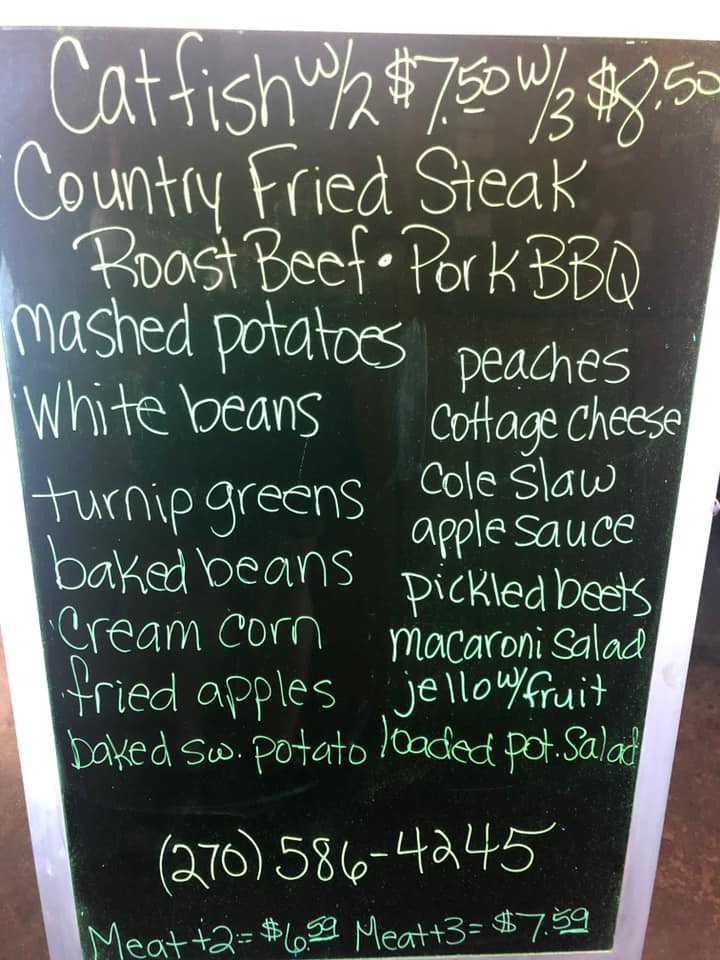 Catfish w/2 $7.50 w/3 $8.50
Country Fried Steak
Roast Beef • Pork BBQ
mashed potatoes
White beans
turnip greens
baked beans
Cream corn
fried apples
baked sw. potato
peaches
Cottage Cheese
Cole Slaw
apple sauce
pickled beets
macaroni Salad
jello w/ fruit
loaded pot. Salad
(270) 586-4245
Meat+2= $6.59 Meat+3= $7.59